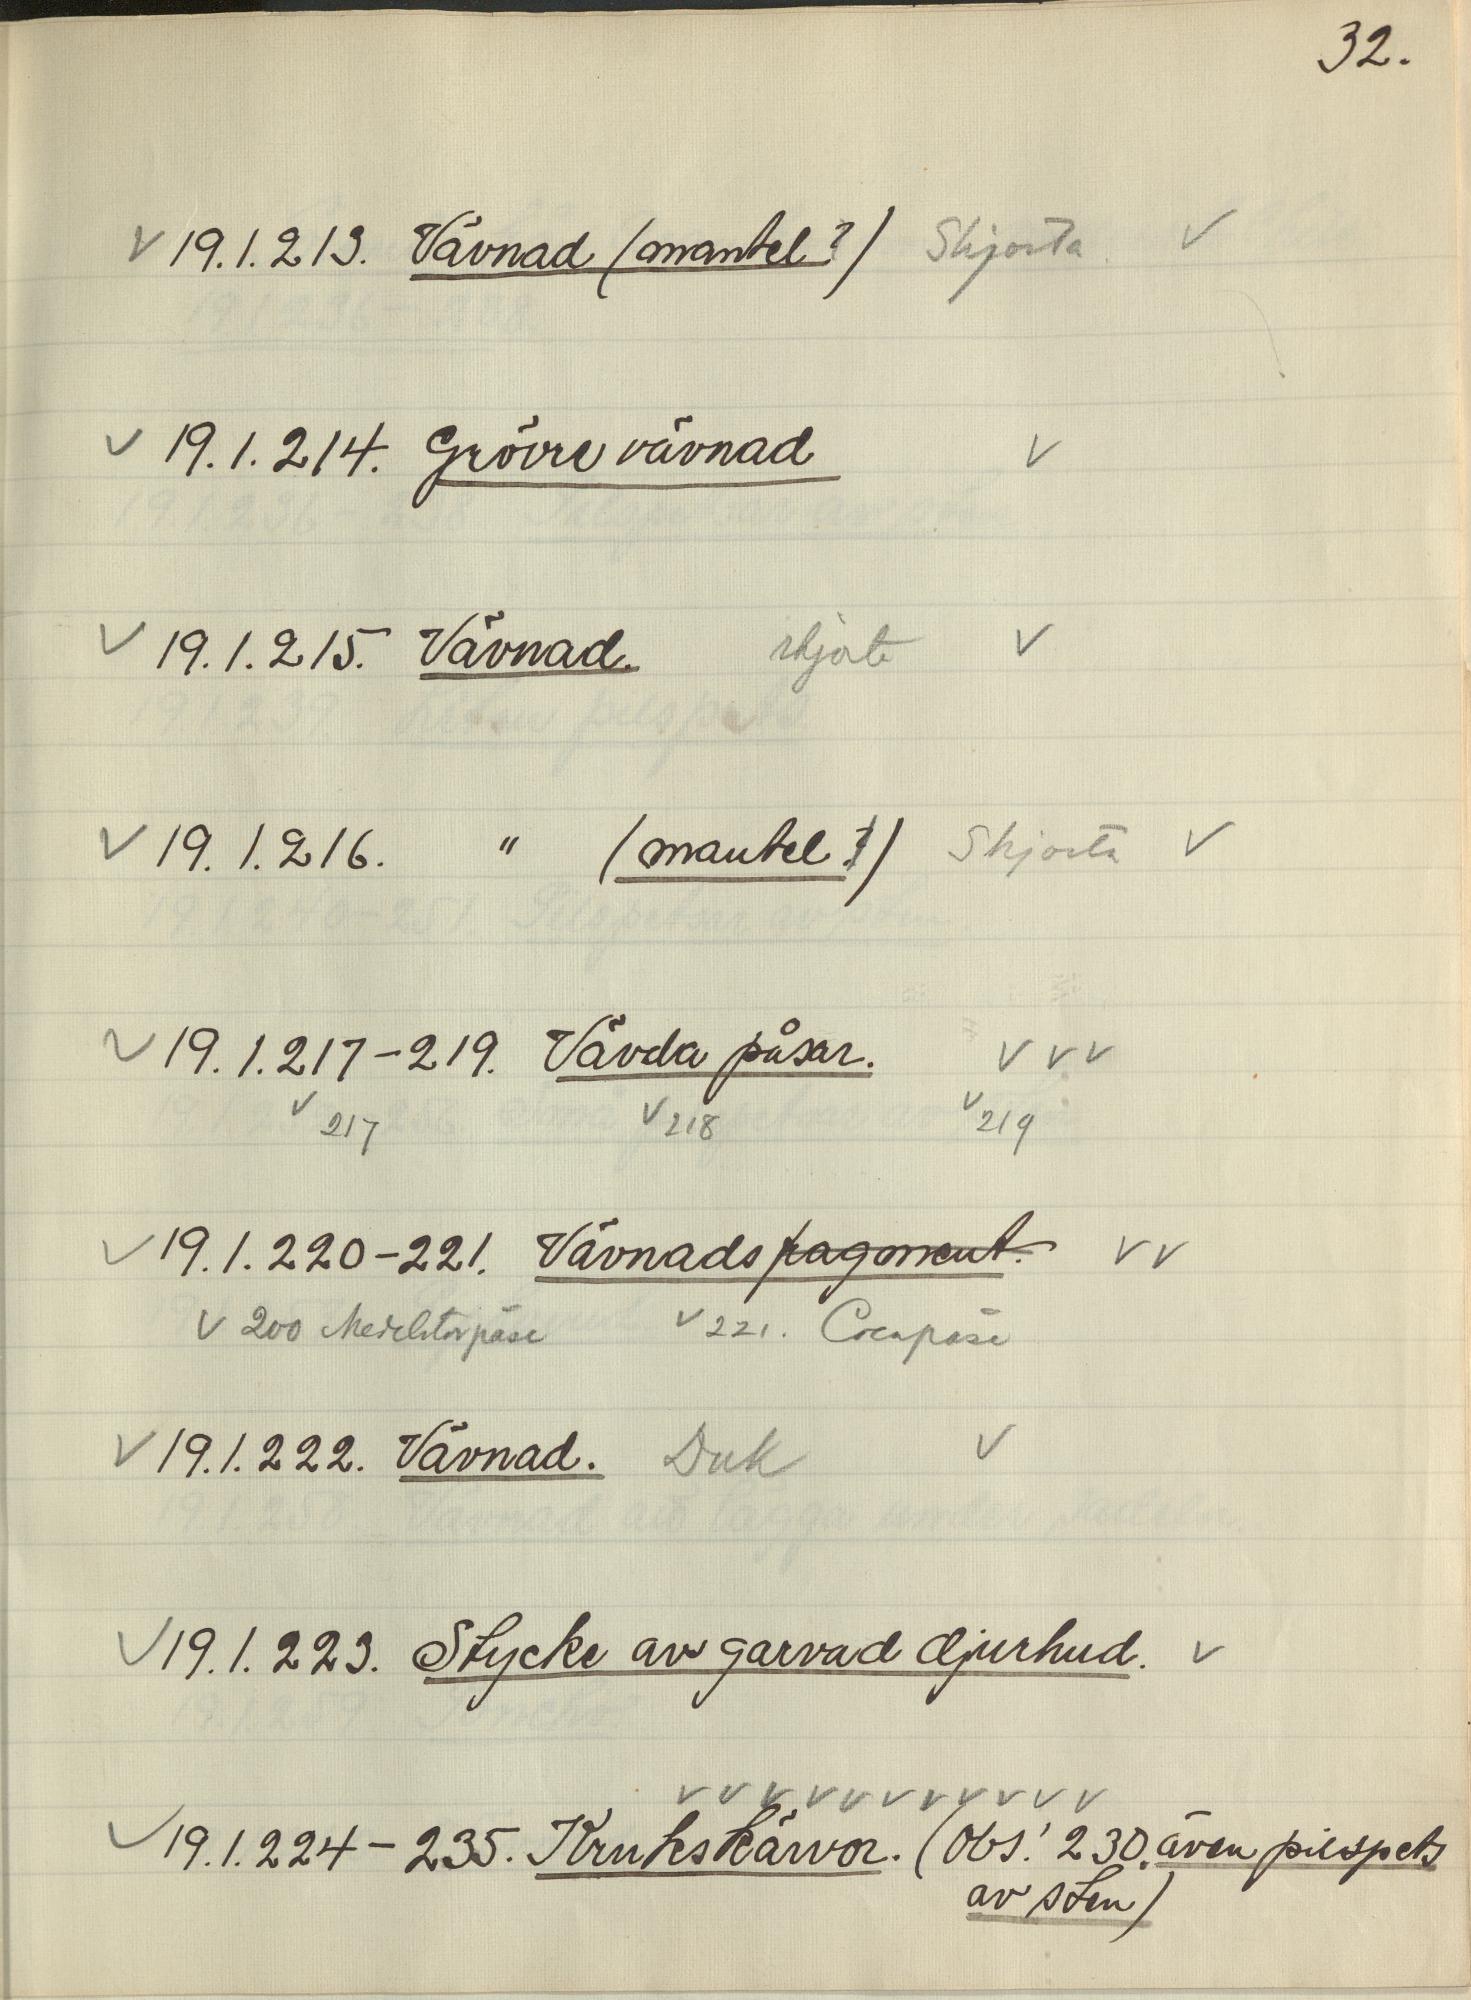 32.
✓ 19.1.213. Vävnad (mantel?) Skjorta ✓
✓ 19.1.214. Grövre vävnad ✓
✓ 19.1.215. Vävnad. skjorta ✓
✓ 19.1.216. " (mantel?) Skjorta ✓
✓ 19.1.217-219. Vävda påsar. ✓ ✓ ✓
✓ 217 ✓ 218 ✓ 219
✓ 19.1.220-221. Vävnadsfragment. ✓ ✓
✓ 200 Medelstor påse ✓ 221. Cocapåse
✓ 19.1.222. Vävnad. Duk ✓
✓ 19.1.223. Stycke av garvad djurhud. ✓
✓ ✓ ✓ ✓ ✓ ✓ ✓ ✓ ✓ ✓ ✓
✓ 19.1.224-235. Krukskärvor. (Obs! 230. även pilspets
av sten)